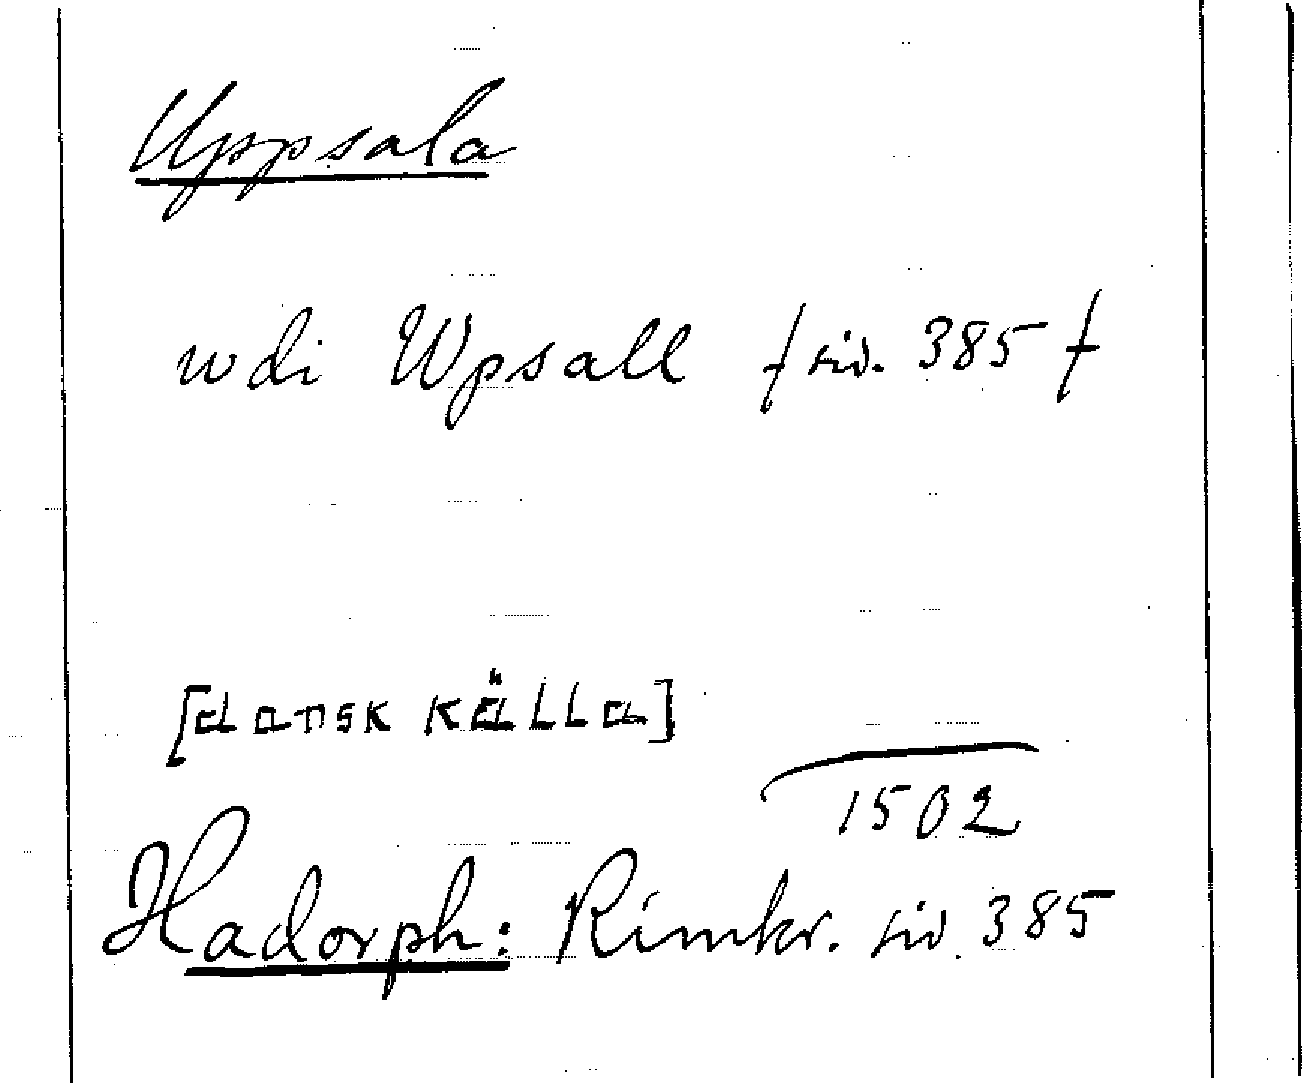 Uppsala
wdi Wpsall f sid. 385 f
[dansk källa]
1502
Hadorph: Rimkr. sid. 385